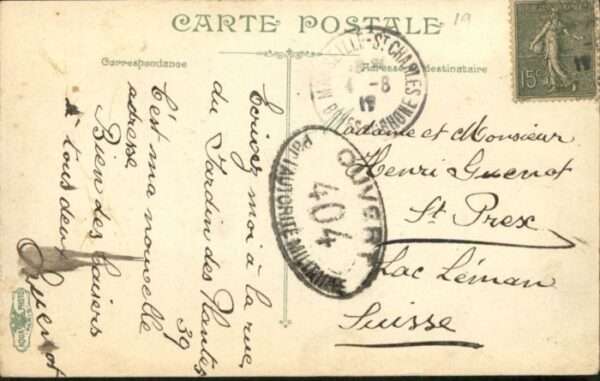 CARTE POSTALE
Correspondance
Adresse du destinataire
19
MARSEILLE-ST CHARLES
4-8
19
BOUCHES DU RHONE
15c
OUVERT
404
Par l'AUTORITÉ MILITAIRE
Ecrivez moi à la rue
du Jardin des Plantes
39
C'est ma nouvelle
adresse
Bien des baisers
à tous deux
Guenot
Madame et Monsieur
Henri Guenot
St Prex
Lac Léman
Suisse